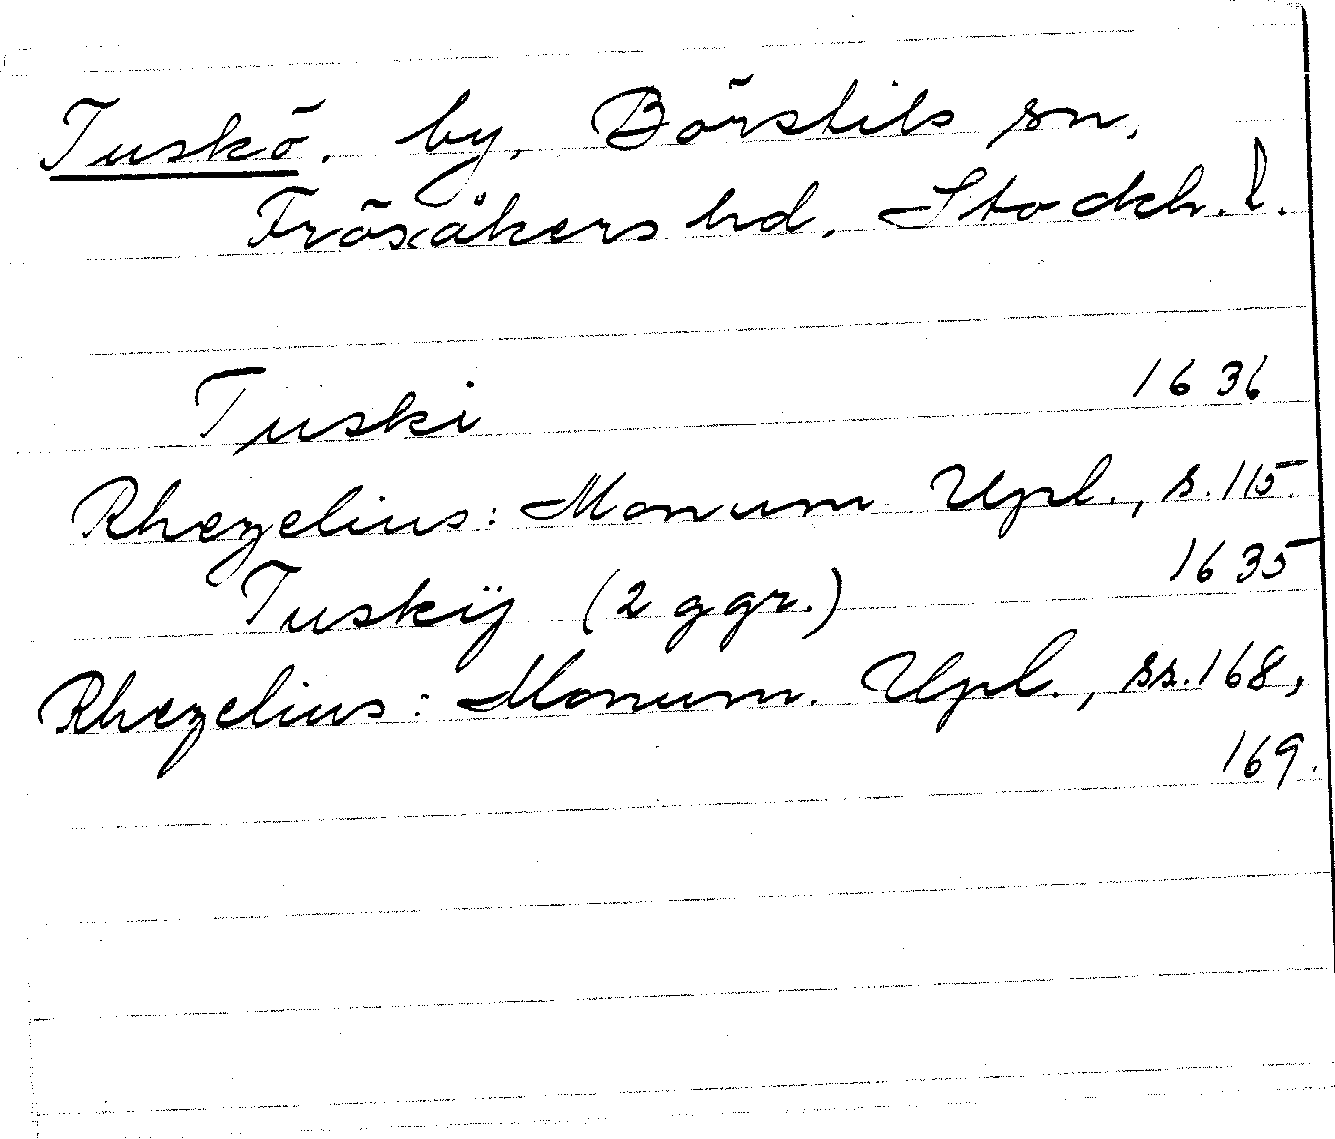 Tuskö. by, Börstils sn,
Frösåkers hd, Stockh. l.
Tuski 1636
Rhezelius: Monum Upl., s. 115.
Tuskÿ (2 ggr.) 1635
Rhezelius: Monum. Upl., ss. 168,
169.